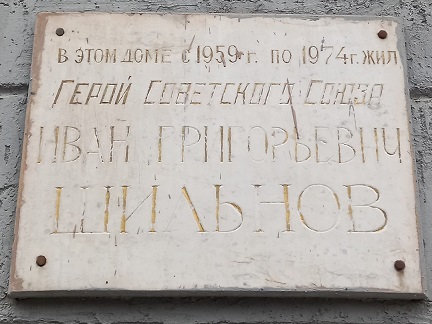 В ЭТОМ ДОМЕ С 1959 г. ПО 1974 г. ЖИЛ
ГЕРОЙ СОВЕТСКОГО СОЮЗА
ИВАН ГРИГОРЬЕВИЧ
ШИЛЬНОВ